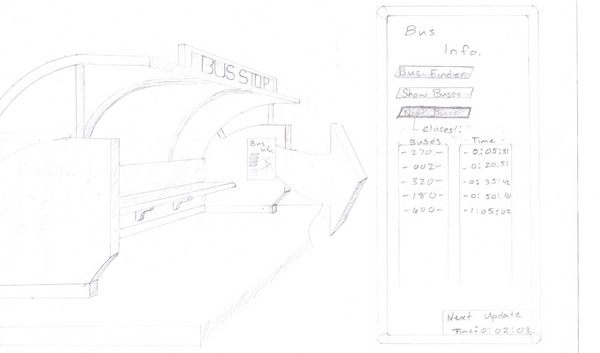 BUS STOP
Bus
Info
Bus
Info.
Bus Finder
Show Buses
Next Buses
Closest:
Buses
Time
-270- -0:05:31
-002- -0:20:51
-320- -0:35:42
-180- -0:50:10
-600- -1:05:02
Next Update
Time: 0:02:03